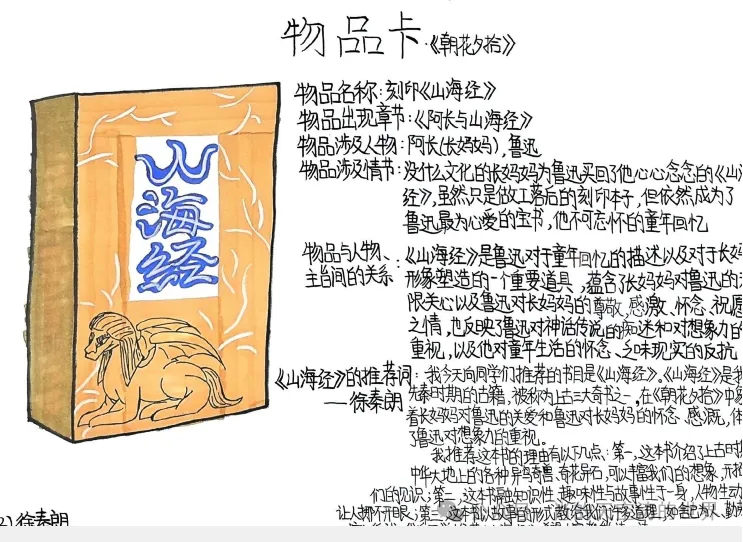 物品卡·《朝花夕拾》
山海经
物品名称：刻印《山海经》
物品出现章节：《阿长与山海经》
物品涉及人物：阿长（长妈妈），鲁迅
物品涉及情节：没什么文化的长妈妈为鲁迅买回了他心心念念的《山海
经》，虽然只是做工落后的刻印本子，但依然成为了
鲁迅最为心爱的宝书，他不可忘怀的童年回忆
物品与人物、主旨间的关系：《山海经》是鲁迅对于童年回忆的描述以及对于长妈
形象塑造的一个重要道具，蕴含了长妈妈对鲁迅的无
限关心以及鲁迅对长妈妈的尊敬，感激、怀念、祝愿
之情，也反映了鲁迅对神话传说的痴迷和对想象力的
重视，以及他对童年生活的怀念、乏味现实的反抗
《山海经》的推荐词：我今天向同学们推荐的书目是《山海经》。《山海经》是我
——徐秦朗
先秦时期的古籍，被称为上古三大奇书之一。在《朝花夕拾》中
着长妈妈对鲁迅的关爱和鲁迅对长妈妈的怀念、感激，体
了鲁迅对想象力的重视。
我推荐这本书的理由有以下几点：第一，这本书介绍了上古时
中华大地上的各种异鸟奇兽、奇花异石，可以丰富我们的想象，开拓
们的见识；第二，这本书融知识性、趣味性与故事性于一身，人物生动
让人挪不开眼；第三，这本书以故事的形式教给我们许多道理，如舍己为人、勤
徐秦朗